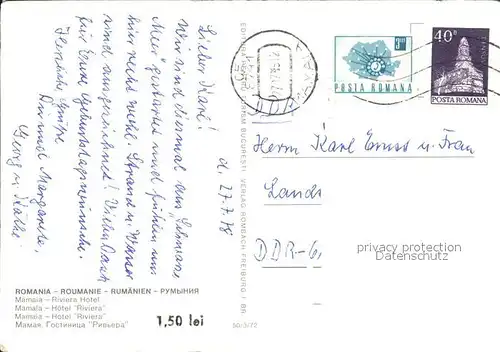 d. 27.7.78
Lieber Karl!
Wir sind diesmal am "Schwarzen
Meer" gestartet und fühlen uns
hier recht wohl. Strand u. Wasser
sind ausgezeichnet! Vielen Dank
für Eure Geburtstagswünsche.
Herzliche Grüße
Dir und Margarete,
Georg u. Käthe
ROMANIA – ROUMANIE – RUMÄNIEN – РУМЫНИЯ
Mamaia – Riviera Hotel
Mamaïa – Hôtel "Riviera"
Mamaia – Hotel "Riviera"
Мамая. Гостиница "Ривьера"
1,50 lei
50/3/72
BUCUREȘTI VERLAG ROMBACH FREIBURG I BR
POSTA ROMANA
40B
POSTA ROMANA
Herrn Karl u. Frau
DDR-6
privacy protection
Datenschutz